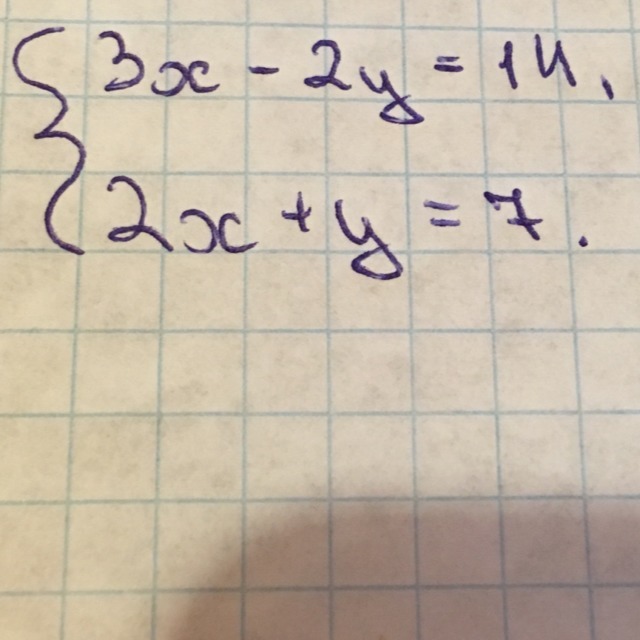 3x - 2y = 14,
2x + y = 7.